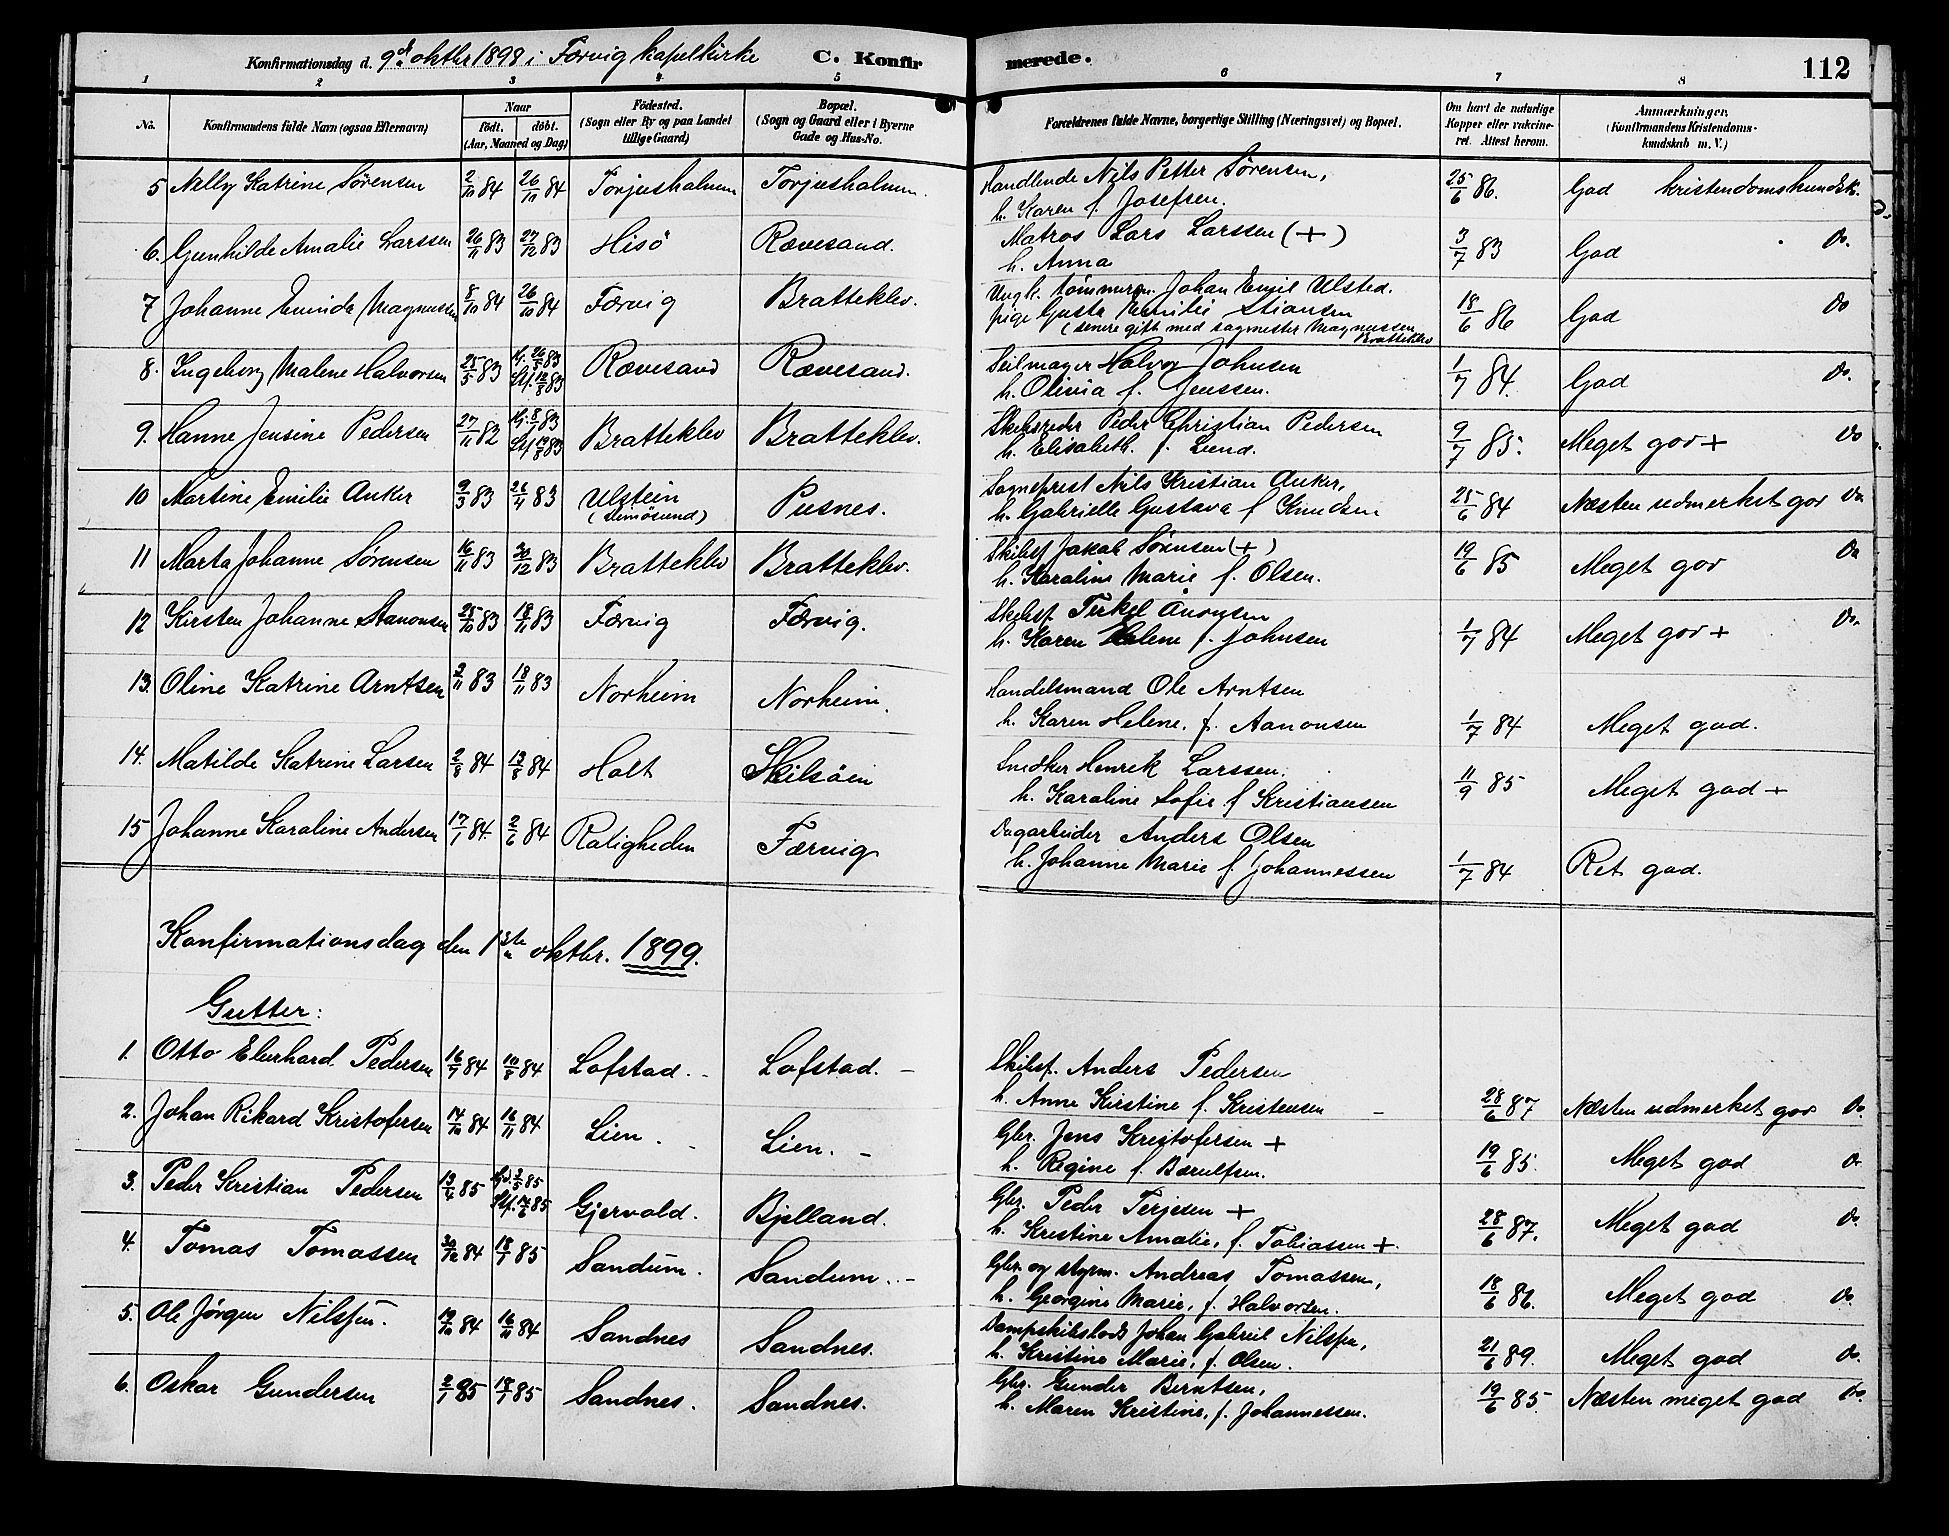 Konfirmationsdag d. 9de oktbr 1898 i Færvig kapelkirke C. Konfir merede. 112
1 2 3 4 5 6 7 8
No. Konfirmandens fulde Navn (ogsaa Efternavn) Naar födt. döbt. (Aar, Maaned og Dag) Födested. (Sogn eller By og paa Landet tillige Gaard) Bopæl. (Sogn og Gaard eller i Byerne Gade og Hus-No. Forældrenes fulde Navne, borgerlige Stilling (Næringsvei) og Bopæl. Om havt de naturlige Kopper eller vaccineret. Attest herom. Anmerkninger. (Konfirmandens Kristendomskundskab m. V.)
5 Nelly Katrine Sørensen 2/10 84 26/11 84 Torjusholmen Torjusholmen. Handlende Nils Petter Sørensen, 25/6 86. God kristendomskundsk.
h. Karen f. Josefsen.
6. Gunhilde Amalie Larssen 26/11 83 27/12 83 Hisö Rævesand. Matros Lars Larssen (+) 3/7 83 God Do.
h. Anna
7 Johanne Eminde Magnussen 8/10 84 26/10 84 Færvig Bratteklev. Ungk. tømmerm. Johan Emil Ulsted. 18/6 86 God Do
pige Gusta Emilie Stiansen
(senere gift med sagmester Magnussen Bratteklev
8. Ingeborg Malene Halvorsen 25/5 83 Hj. 26/5 83 Stf. 12/8 83 Rævesand Rævesand. Seilmager Halvor Johnsen 1/7 84. God Do.
h. Olivia f. Jenssen.
9. Hanne Jensine Pedersen 27/11 82 Bratteklev Bratteklev. Skibsreder Peder Christian Pedersen 9/7 85. Meget god + Do
h. Elisabeth f. Lund.
10 Martine Emilie Anker 9/3 83 26/4 83 Ulstein Pusnes. Sogneprest Nils Kristian Anker, 25/6 84 Næsten udmerket god Do
h. Gabrielle Gustava f Knudsen
11 Marta Johanne Sørensen 16/11 83 30/12 83 Bratteklev Bratteklev. Skibsf Jakob Sørensen (+) 19/6 85 Meget god Do
h. Karoline Marie f. Olsen.
12 Kirsten Johanne Aanonsen 25/10 83 18/11 83 Færvig Færvig. Skibsf Terkel Ånonsen 1/7 84 Meget god + Do.
h. Karen Helene f. Johnsen
13. Oline Katrine Arntsen 2/11 83 18/11 83 Norheim Norheim. Handelsmand Ole Arntsen
h. Karen Helene. f. Aanonsen 1/7 84 Meget god.
14. Matilde Katrine Larsen 2/8 84 13/8 84 Holt Skilsöen Snedker Henrik Larssen. 11/9 85 Meget god +
h. Karoline Sofie f Kristiansen
15 Johanne Karoline Andersen 17/1 84. 2/6 84 Roligheden Færvig Dagarbeider Anders Olsen
h. Johanne Marie f Johannessen 1/7 84 Ret god.
Konfirmationsdag den 1ste oktbr. 1899.
Gutter:
1. Otto Eberhard. Pedersen 16/7 84 10/8 84 Lofstad. - Lofstad. - Skibsf. Anders Pedersen
h. Anne Kirstine f. Kristensen - 28/6 87 Næsten udmerket god Do.
2. Johan Rikard Kristofersen 14/10 84 16/11 84 Lien. - Lien. - Gbr. Jens Kristofersen +
h. Regine f. Bærulfsen. 19/6 85. Meget god Do
3. Peder Kristian Pedersen 13/4 85 Gjervold. Bjelland. Gbr. Peder Terjesen +
h. Kristine Amalie, f. Tobiassen +. 28/6 87. Meget god Do.
4. Tomas Tomassen 30/12 84 18/1 85 Sandum. Sandum. - Gbr. og styrm. Andreas Tomassen,
h. Georgine Marie, f. Halvorsen. 18/6 86. Meget god Do.
5. Ole Jørgen Nilssen. 19/10 84 16/11 84 Sandnes Sandnes. Dampskibslods Johan Gabriel Nilssen,
h. Kristine Marie, f. Olsen. 21/6 89. Meget god Do.
6. Oskar Gundersen 2/1 85 18/1 85 Sandnes. Sandnes. Gbr. Gunder Berntsen,
h. Maren Kristine, f. Johannessen. 19/6 85. Næsten meget god Do.